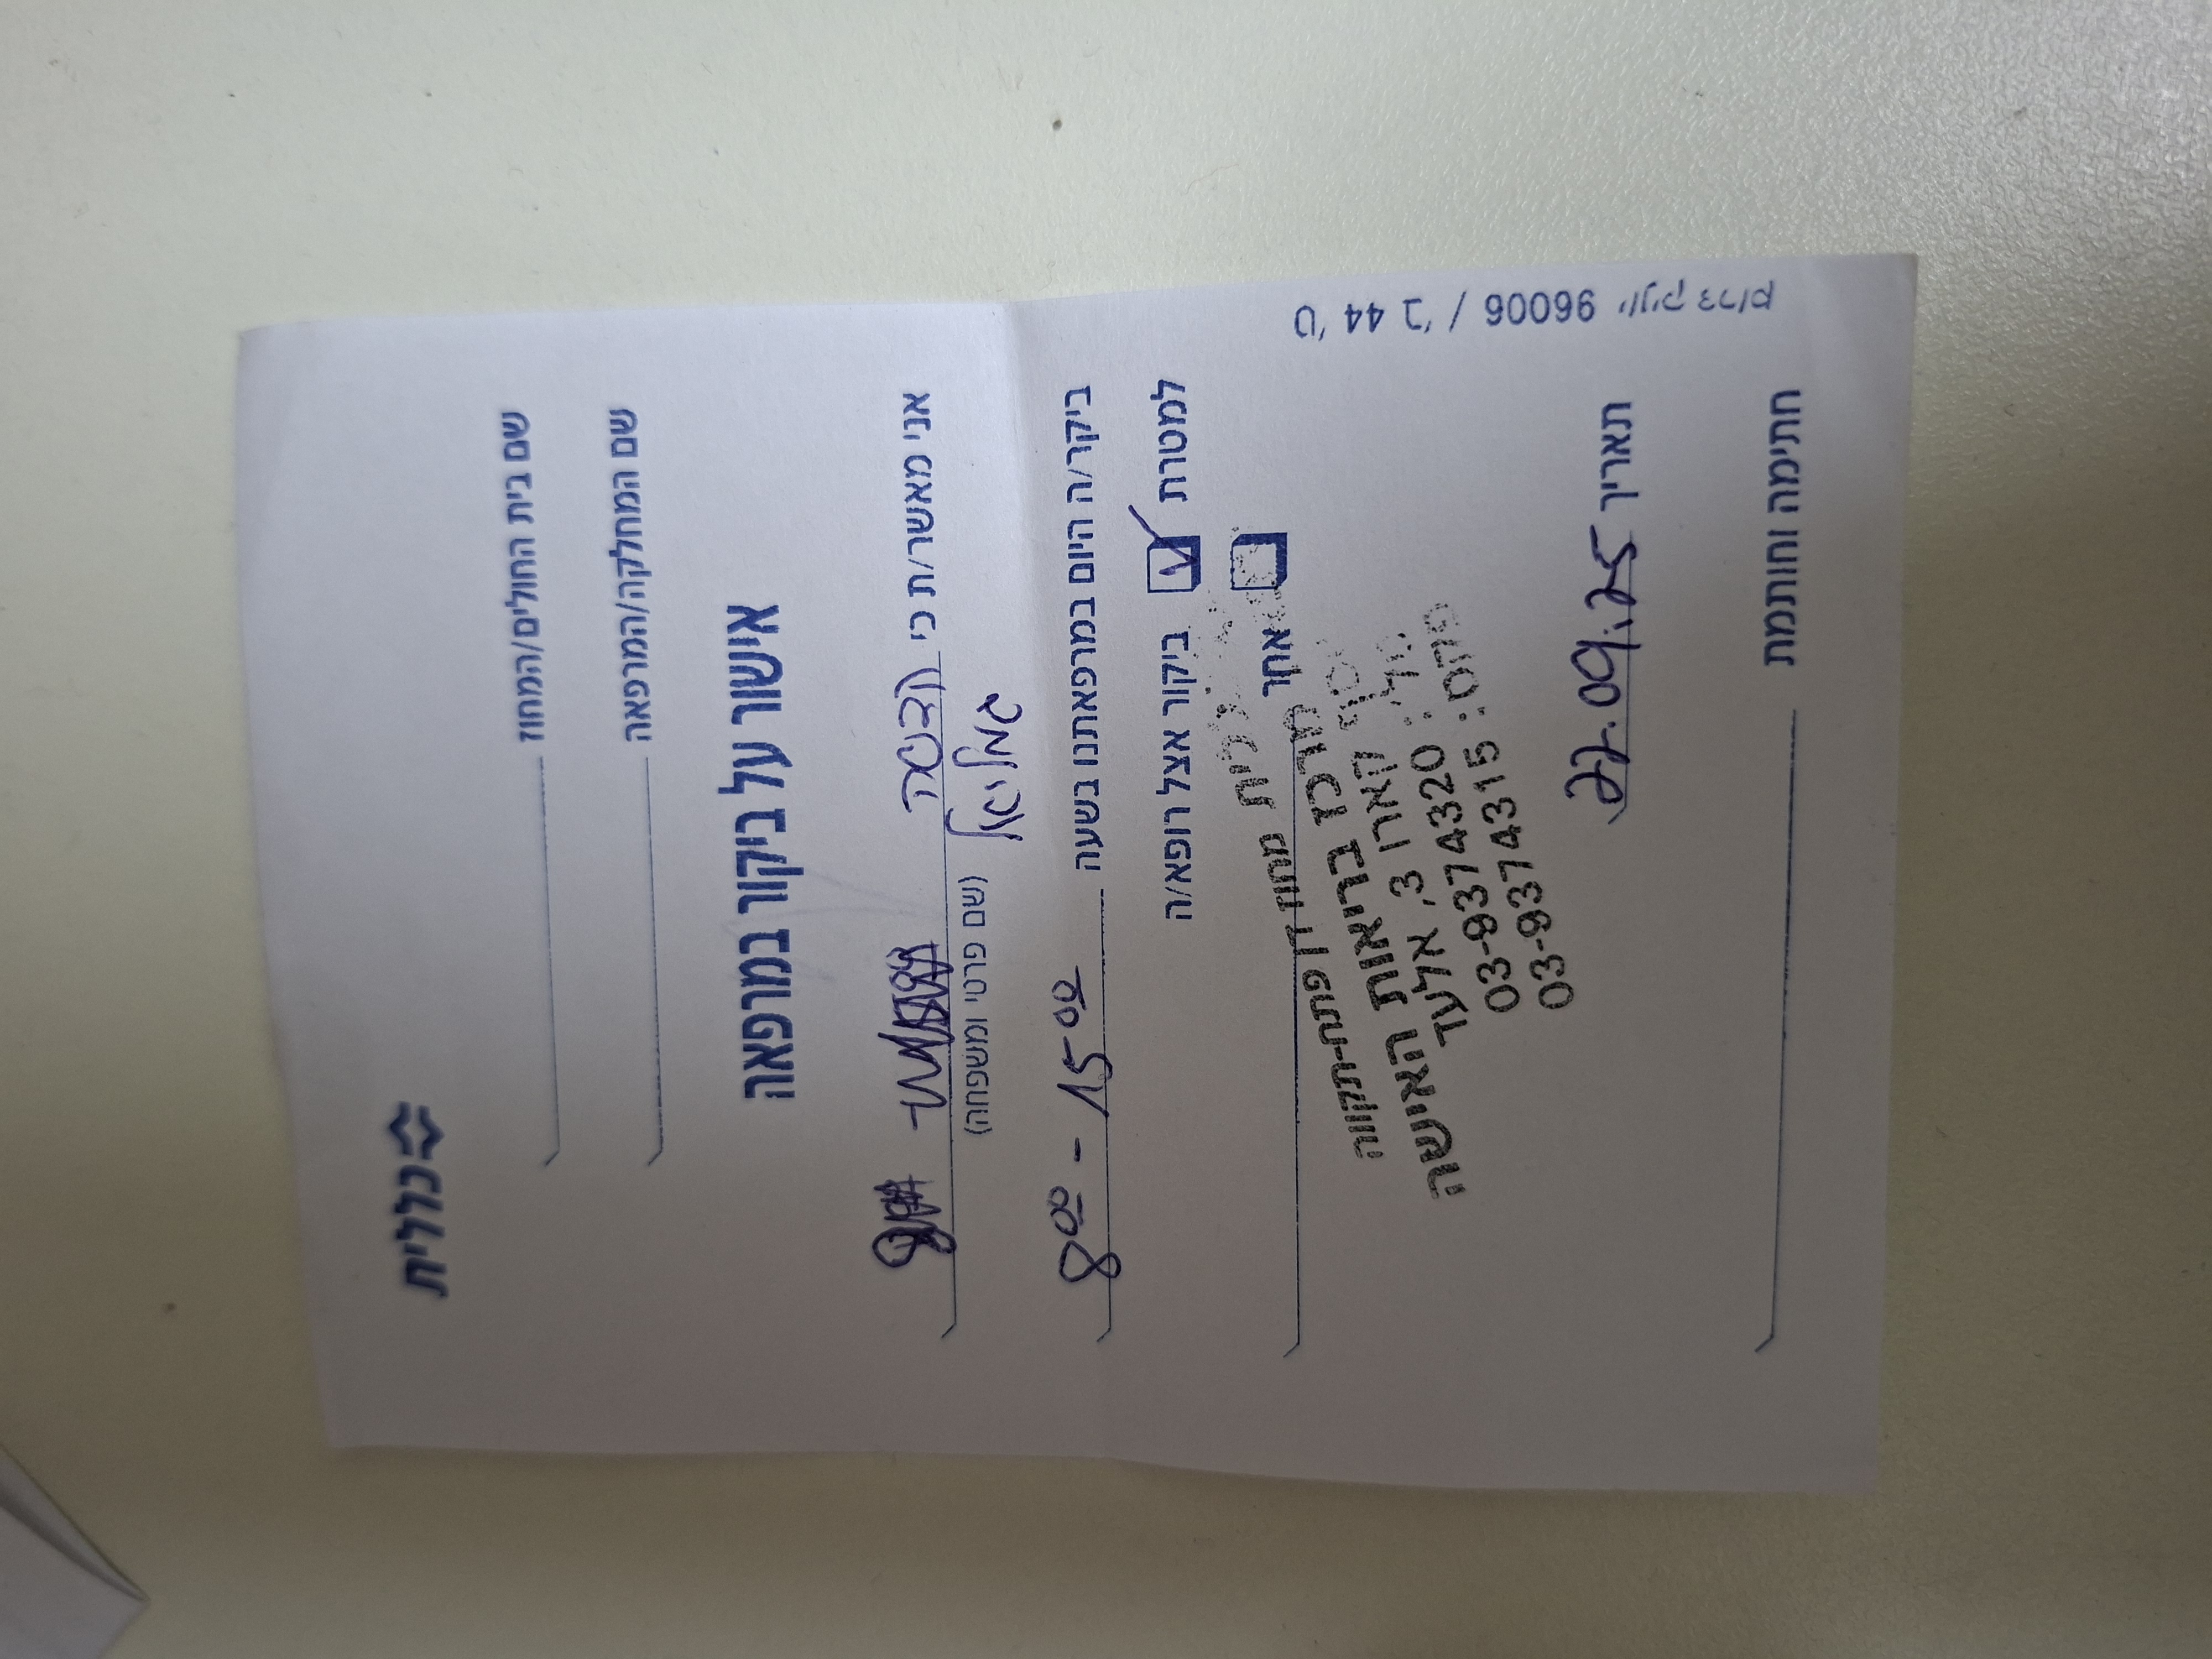 כללית
שם בית החולים/המחוז
שם המחלקה/המרפאה
אישור על ביקור במרפאה
אני מאשר/ת כי הדסה
גמליאל
(שם פרטי ומשפחה)
ביקר/ה היום במרפאתנו בשעה 8⁰⁰ - 15⁰⁰
למטרת ביקור אצל רופא/ה
אחר
כללית מחוז דן פתח-תקווה
מרכז בריאות האישה
יוסף קארו 3, אלעד
טל': 03-9374320
פקס: 03-9374315
תאריך 22.09.25
חתימה וחותמת
ט' 44 ב' / 96006 יוניק דרום